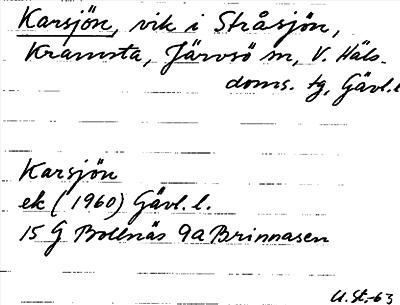 Karsjön, vik i Stråsjön,
Kramsta, Järvsö sn, V. Häls.
doms. tg, Gävl.l
Karsjön
ek (1960) Gävl. l.
15 G Bollnäs 9a Brinnåsen
U.St.-63